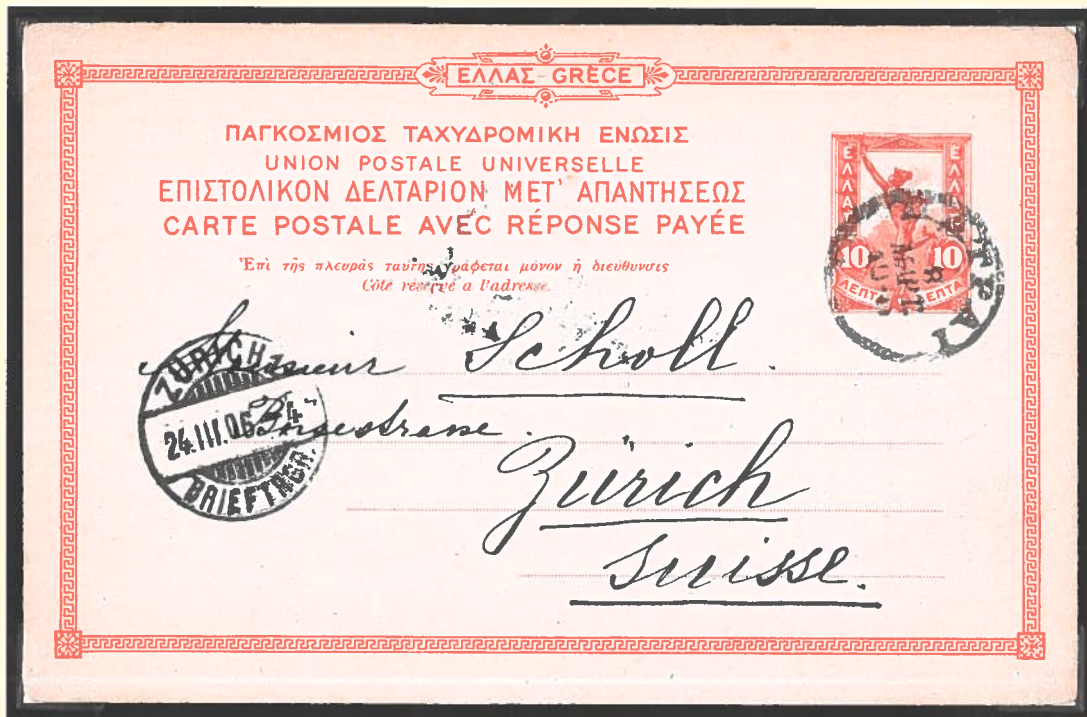 ΕΛΛΑΣ - GRÈCE
ΠΑΓΚΟΣΜΙΟΣ ΤΑΧΥΔΡΟΜΙΚΗ ΕΝΩΣΙΣ
UNION POSTALE UNIVERSELLE
ΕΠΙΣΤΟΛΙΚΟΝ ΔΕΛΤΑΡΙΟΝ ΜΕΤ' ΑΠΑΝΤΗΣΕΩΣ
CARTE POSTALE AVEC RÉPONSE PAYÉE
Ἐπὶ τῆς πλευρᾶς ταύτης γράφεται μόνον ἡ διεύθυνσις
Côté réservé a l'adresse.
ΕΛΛΑΣ ΕΛΛΑΣ
10 10
ΛΕΠΤΑ ΛΕΠΤΑ
ΠΑΤΡΑΙ
Monsieur Scholl.
Zürich
Suisse.
ZÜRICH
24.III.06
BRIEFTRGR.